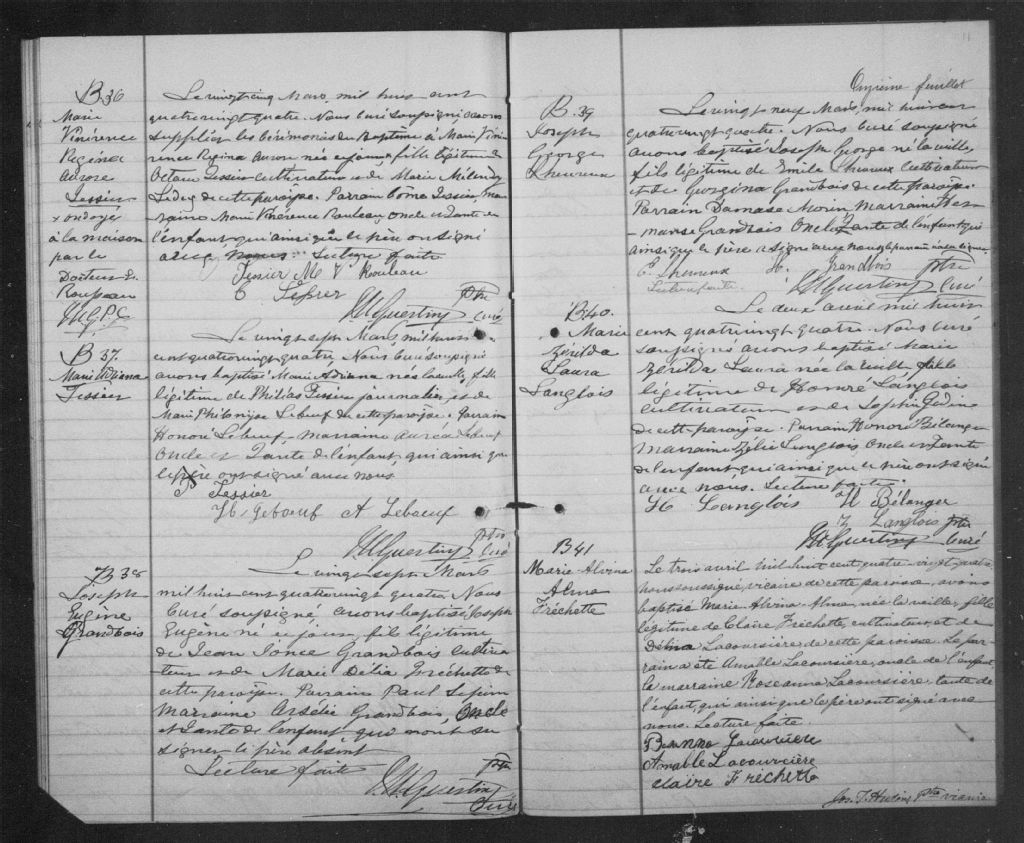 B 36
Marie
Vinérence
Régina
Aurore
Tessier
ondoyée
à la maison
par le
Docteur
Rousseau
Le vingt cinq Mars, mil huit cent
quatrevingt quatre. Nous curé soussigné avons
supplée les cérémonies du Baptême à Marie Viné
rence Régina Aurore née ce jour fille légitime
Octave Tessier cultivateur et de Marie
de cette paroisse. Parrain Côme Tessier, Mar
raine Marie Vinérence Rouleau oncle et tante de
l'enfant qui ainsi que le père ont signé
avec nous. Lecture faite
Tessier M V Rouleau
ptre
curé
B 37.
Marie Adriana
Tessier
Le vingt sept Mars mil huit
cent quatrevingt quatre Nous curé soussigné
avons baptisé Marie Adriana née la veille fille
légitime de Philéas Tessier journalier et de
Marie Lebeuf de cette paroisse. Parrain
Honoré Lebeuf. Marraine Auréa Lebeuf
Oncle et Tante de l'enfant qui ainsi que
le père ont signé avec nous.
P Tessier
H. Leboeuf A Leboeuf
ptre
curé
B 38
Joseph
Eugène
Grandbois
Le vingt sept Mars
mil huit cent quatrevingt quatre Nous
curé soussigné avons baptisé Joseph
Eugène né ce jour, fils légitime
de Jean Grandbois cultiva
teur et de Marie Délia Fréchette de
cette paroisse. Parrain Paul
Marraine Arsélie Grandbois, Oncle
et Tante de l'enfant qui n'ont su
signer le père absent
Lecture faite
ptre
Curé
Onzième feuillet
B. 39
Joseph
George
Lheureux
Le vingt neuf Mars, mil huit cent
quatrevingt quatre. Nous curé soussigné
avons baptisé Joseph George né la veille
fils légitime de Emile Lheureux cultivateur
et de Georgina Grandbois de cette paroisse.
Parrain Damase Morin Marraine
Grandbois Oncle Tante de l'enfant qui
ainsi que le père signé avec nous
E. Lheureux H. Grandbois ptre
Lecture faite. curé
B 40.
Marie
Zérilda
Laura
Langlois
Le deux avril mil huit
cent quatrevingt quatre. Nous curé
soussigné avons baptisé Marie
Zérilda Laura née la veille fille
légitime de Honoré Langlois
cultivateur et de Sophie Godin
de cette paroisse. Parrain Honoré Bélanger
Marraine Zélie Langlois, Oncle et Tante
de l'enfant qui ainsi que le père ont signé
avec nous. Lecture faite.
H Langlois H Bélanger
Z Langlois ptre
curé
B 41
Marie-Alvina
Alma
Fréchette
Le trois avril mil huit cent quatre-vingt-quatre
nous soussigné, vicaire de cette paroisse, avons
baptisé Marie-Alvina-Alma, née la veille, fille
légitime de Claire Fréchette, cultivateur, et de
Délina Lacoursière de cette paroisse. Le par-
rain a été Amable Lacoursière, oncle de l'enfant
la marraine Roseanna Lacoursière, tante de
l'enfant, qui ainsi que le père ont signé avec
nous. Lecture faite.
Lacoursière
Amable Lacourcière
Claire Fréchette
ptre vicaire